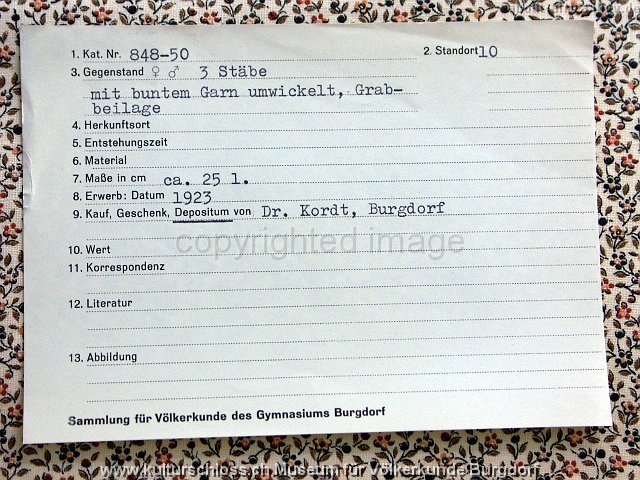 1. Kat. Nr. 848-50 2. Standort 10
3. Gegenstand ♀ ♂ 3 Stäbe
mit buntem Garn umwickelt, Grab-
beilage
4. Herkunftsort
5. Entstehungszeit
6. Material
7. Maße in cm ca. 25 l.
8. Erwerb: Datum 1923
9. Kauf, Geschenk, Depositum von Dr. Kordt, Burgdorf
copyrighted image
10. Wert
11. Korrespondenz
12. Literatur
13. Abbildung
Sammlung für Völkerkunde des Gymnasiums Burgdorf
www.kulturschloss.ch Museum für Völkerkunde Burgdorf